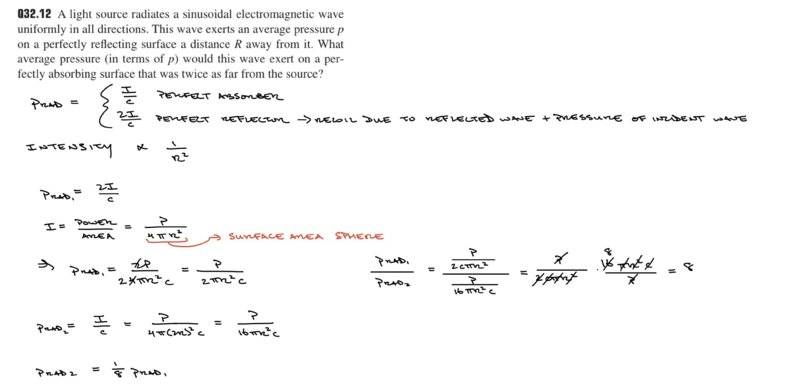 Q32.12 A light source radiates a sinusoidal electromagnetic wave
uniformly in all directions. This wave exerts an average pressure p
on a perfectly reflecting surface a distance R away from it. What
average pressure (in terms of p) would this wave exert on a per-
fectly absorbing surface that was twice as far from the source?
PRAD = { I/c PERFECT ABSORBER
2I/c PERFECT REFLECTOR → RECOIL DUE TO REFLECTED WAVE + PRESSURE OF INCIDENT WAVE
INTENSITY ∝ 1/R²
PRAD₁ = 2I/c
I = POWER/AREA = P/4πR² → SURFACE AREA SPHERE
⇒ PRAD₁ = 2P/24πR²c = P/2πR²c
PRAD₁/PRAD₂ = P/2cπR² / P/16πR²c = P/2cπR² · 8 16πR²c/P = 8
PRAD₂ = I/c = P/4π(2R)²c = P/16πR²c
PRAD2 = 1/8 PRAD₁